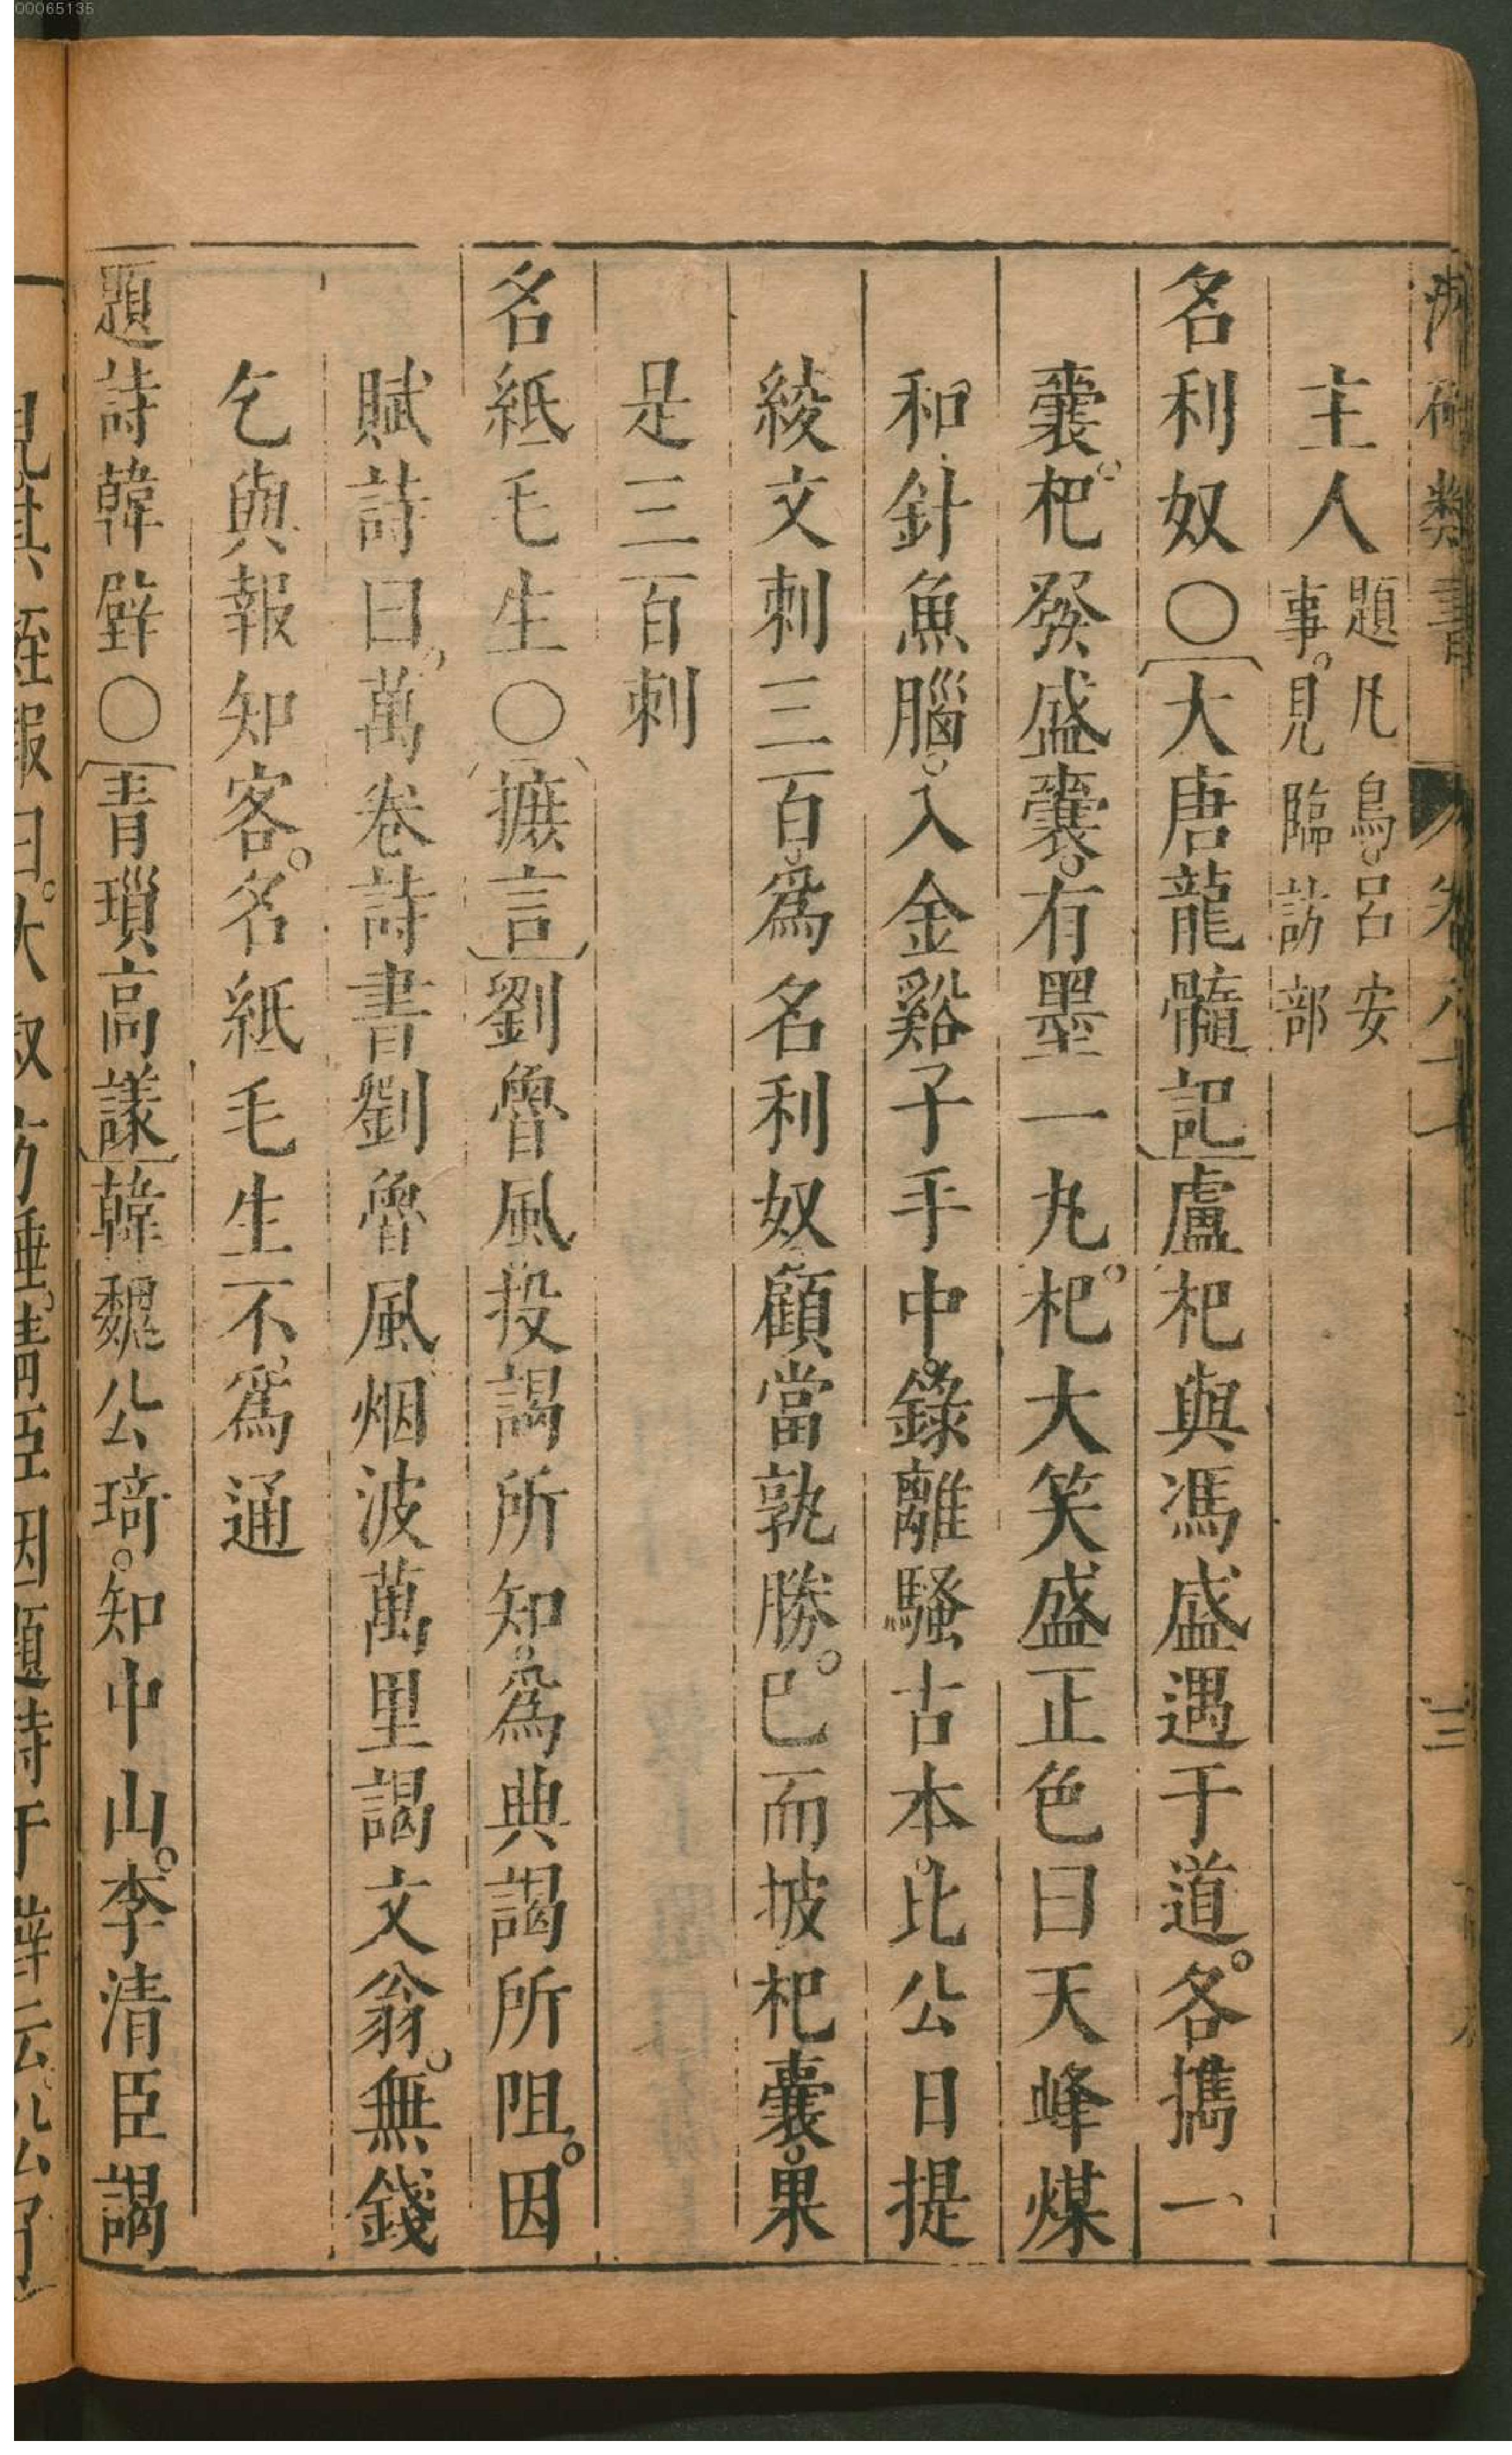 00065135
主人題凡鳥呂安
事見臨訪部
名利奴〇大唐龍髓記盧杞與馮盛遇于道各攜一
囊杞發盛囊有墨一丸杞大笑盛正色曰天峰煤
和針魚腦入金谿子手中錄離騷古本比公日提
綾文刺三百爲名利奴顧當孰勝已而披杞囊果
是三百刺
名紙毛生〇摭言劉魯風投謁所知爲典謁所阻因
賦詩曰萬卷詩書劉魯風烟波萬里謁文翁無錢
乞與報知客名紙毛生不爲通
題詩韓壁〇青瑣高議韓魏公琦知中山李清臣謁